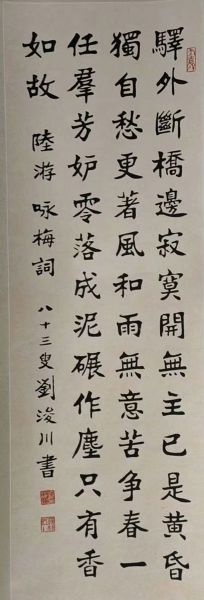 驛外斷橋邊寂寞開無主已是黄昏
獨自愁更著風和雨無意苦争春一
任羣芳妒零落成泥碾作塵只有香
如故 陸游 咏梅詞 八十三叟劉浚川書